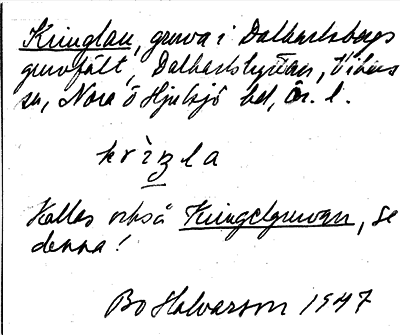 Kringlan, gruva i Dalkarlsbergs
gruvfält, Dalkarlshyttan, Vikers
sn, Nora o Hjulsjö bd, Ör. l.
krìŋla
Kallas också Kringelgruvan, se
denna!
Bo Halvarson 1947